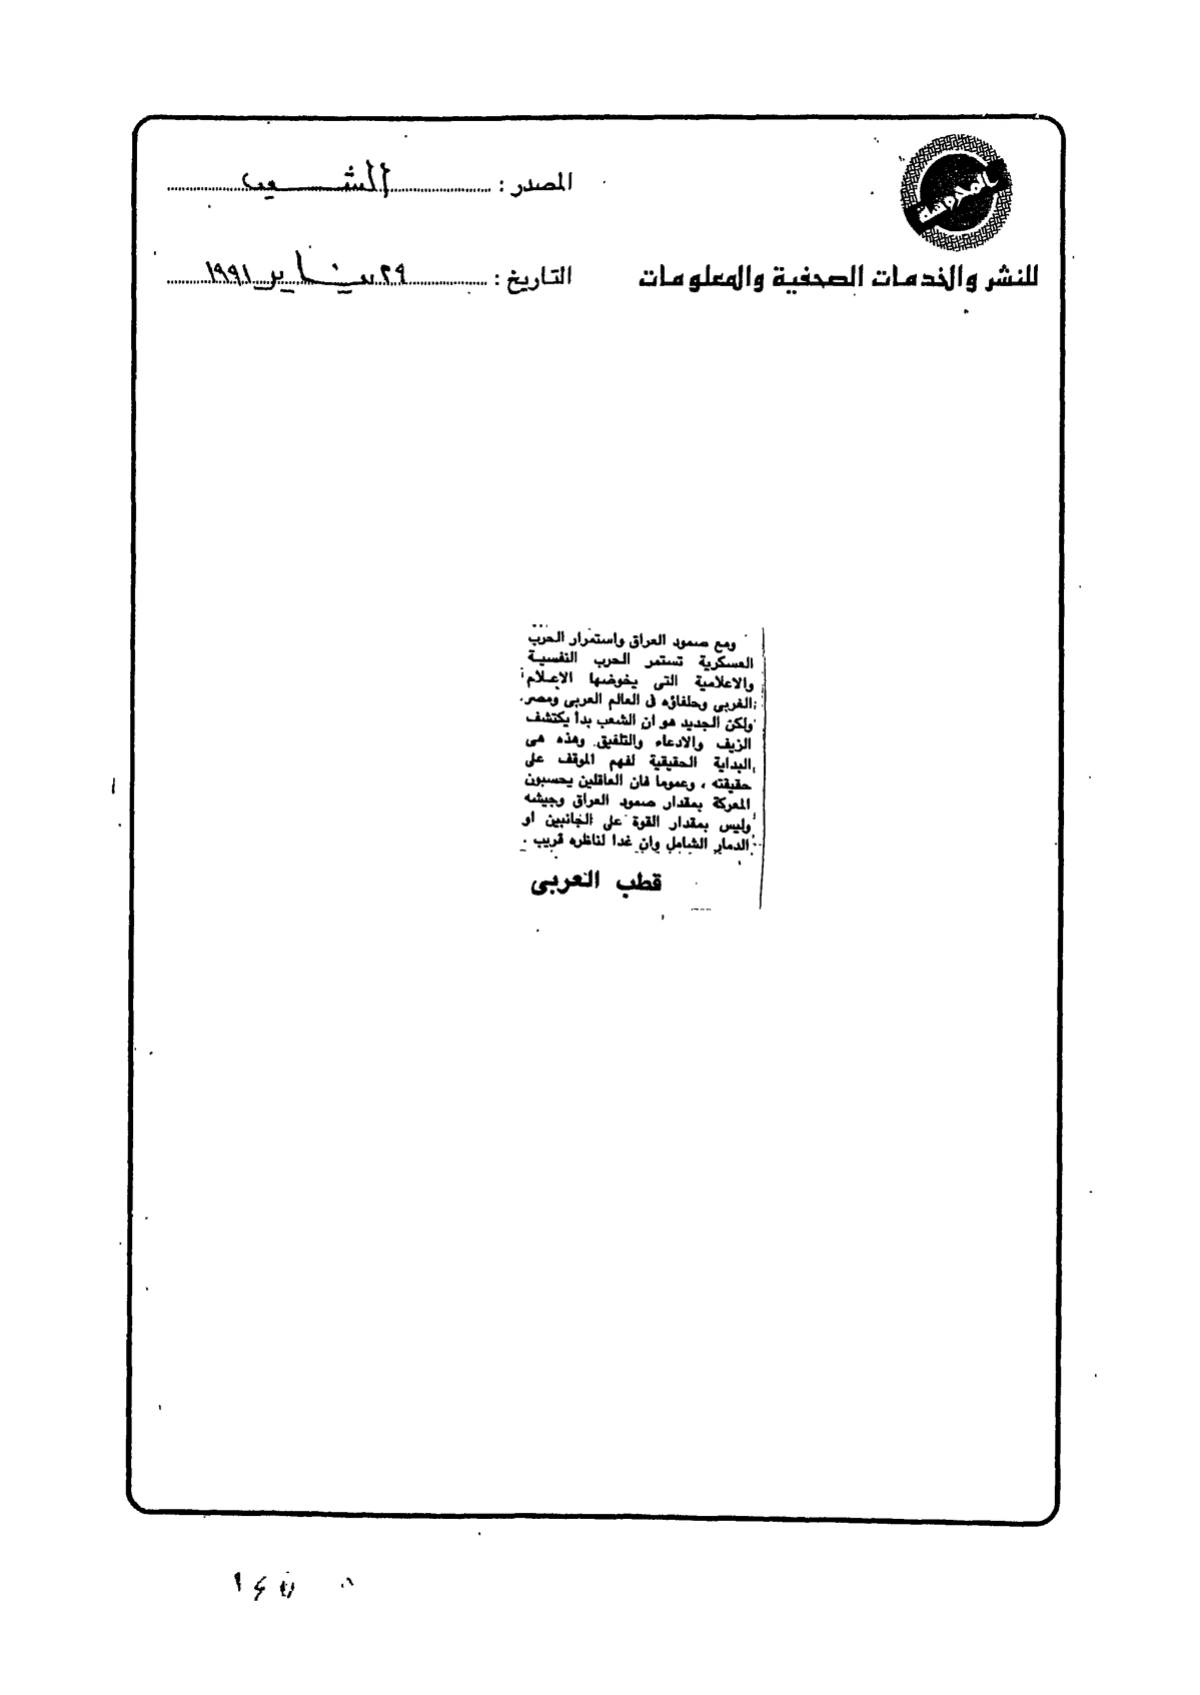 المحروسة
للنشر والخدمات الصحفية والمعلومات
المصدر : الشعب
التاريخ : ٢٩ يناير ١٩٩١
ومع صمود العراق واستمرار الحرب
العسكرية تستمر الحرب النفسية
والاعلامية التى يخوضها الاعلام
الغربى وحلفاؤه فى العالم العربى ومصر.
ولكن الجديد هو ان الشعب بدأ يكتشف
الزيف والادعاء والتلفيق. وهذه هى
البداية الحقيقية لفهم الموقف على
حقيقته ، وعموما فان العاقلين يحسبون
المعركة بمقدار صمود العراق وجيشه
وليس بمقدار القوة على الجانبين او
الدمار الشامل وان غدا لناظره قريب .
قطب العربى